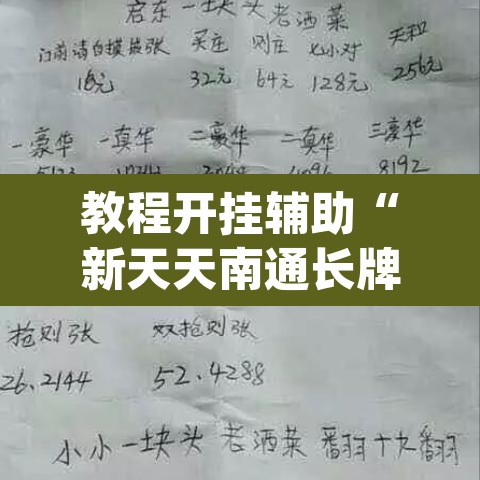 启东一块头老洒菜
门前清自摸接张 买庄 则庄 七小对 天和
16元 32元 64元 128元 256元
一豪华 一真华 二豪华 二真华 三豪华
8192
教程开挂辅助“
新天天南通长牌
抢则张 双抢则张
26.2144 52.4288
小小一块头 老洒菜 翻十九翻